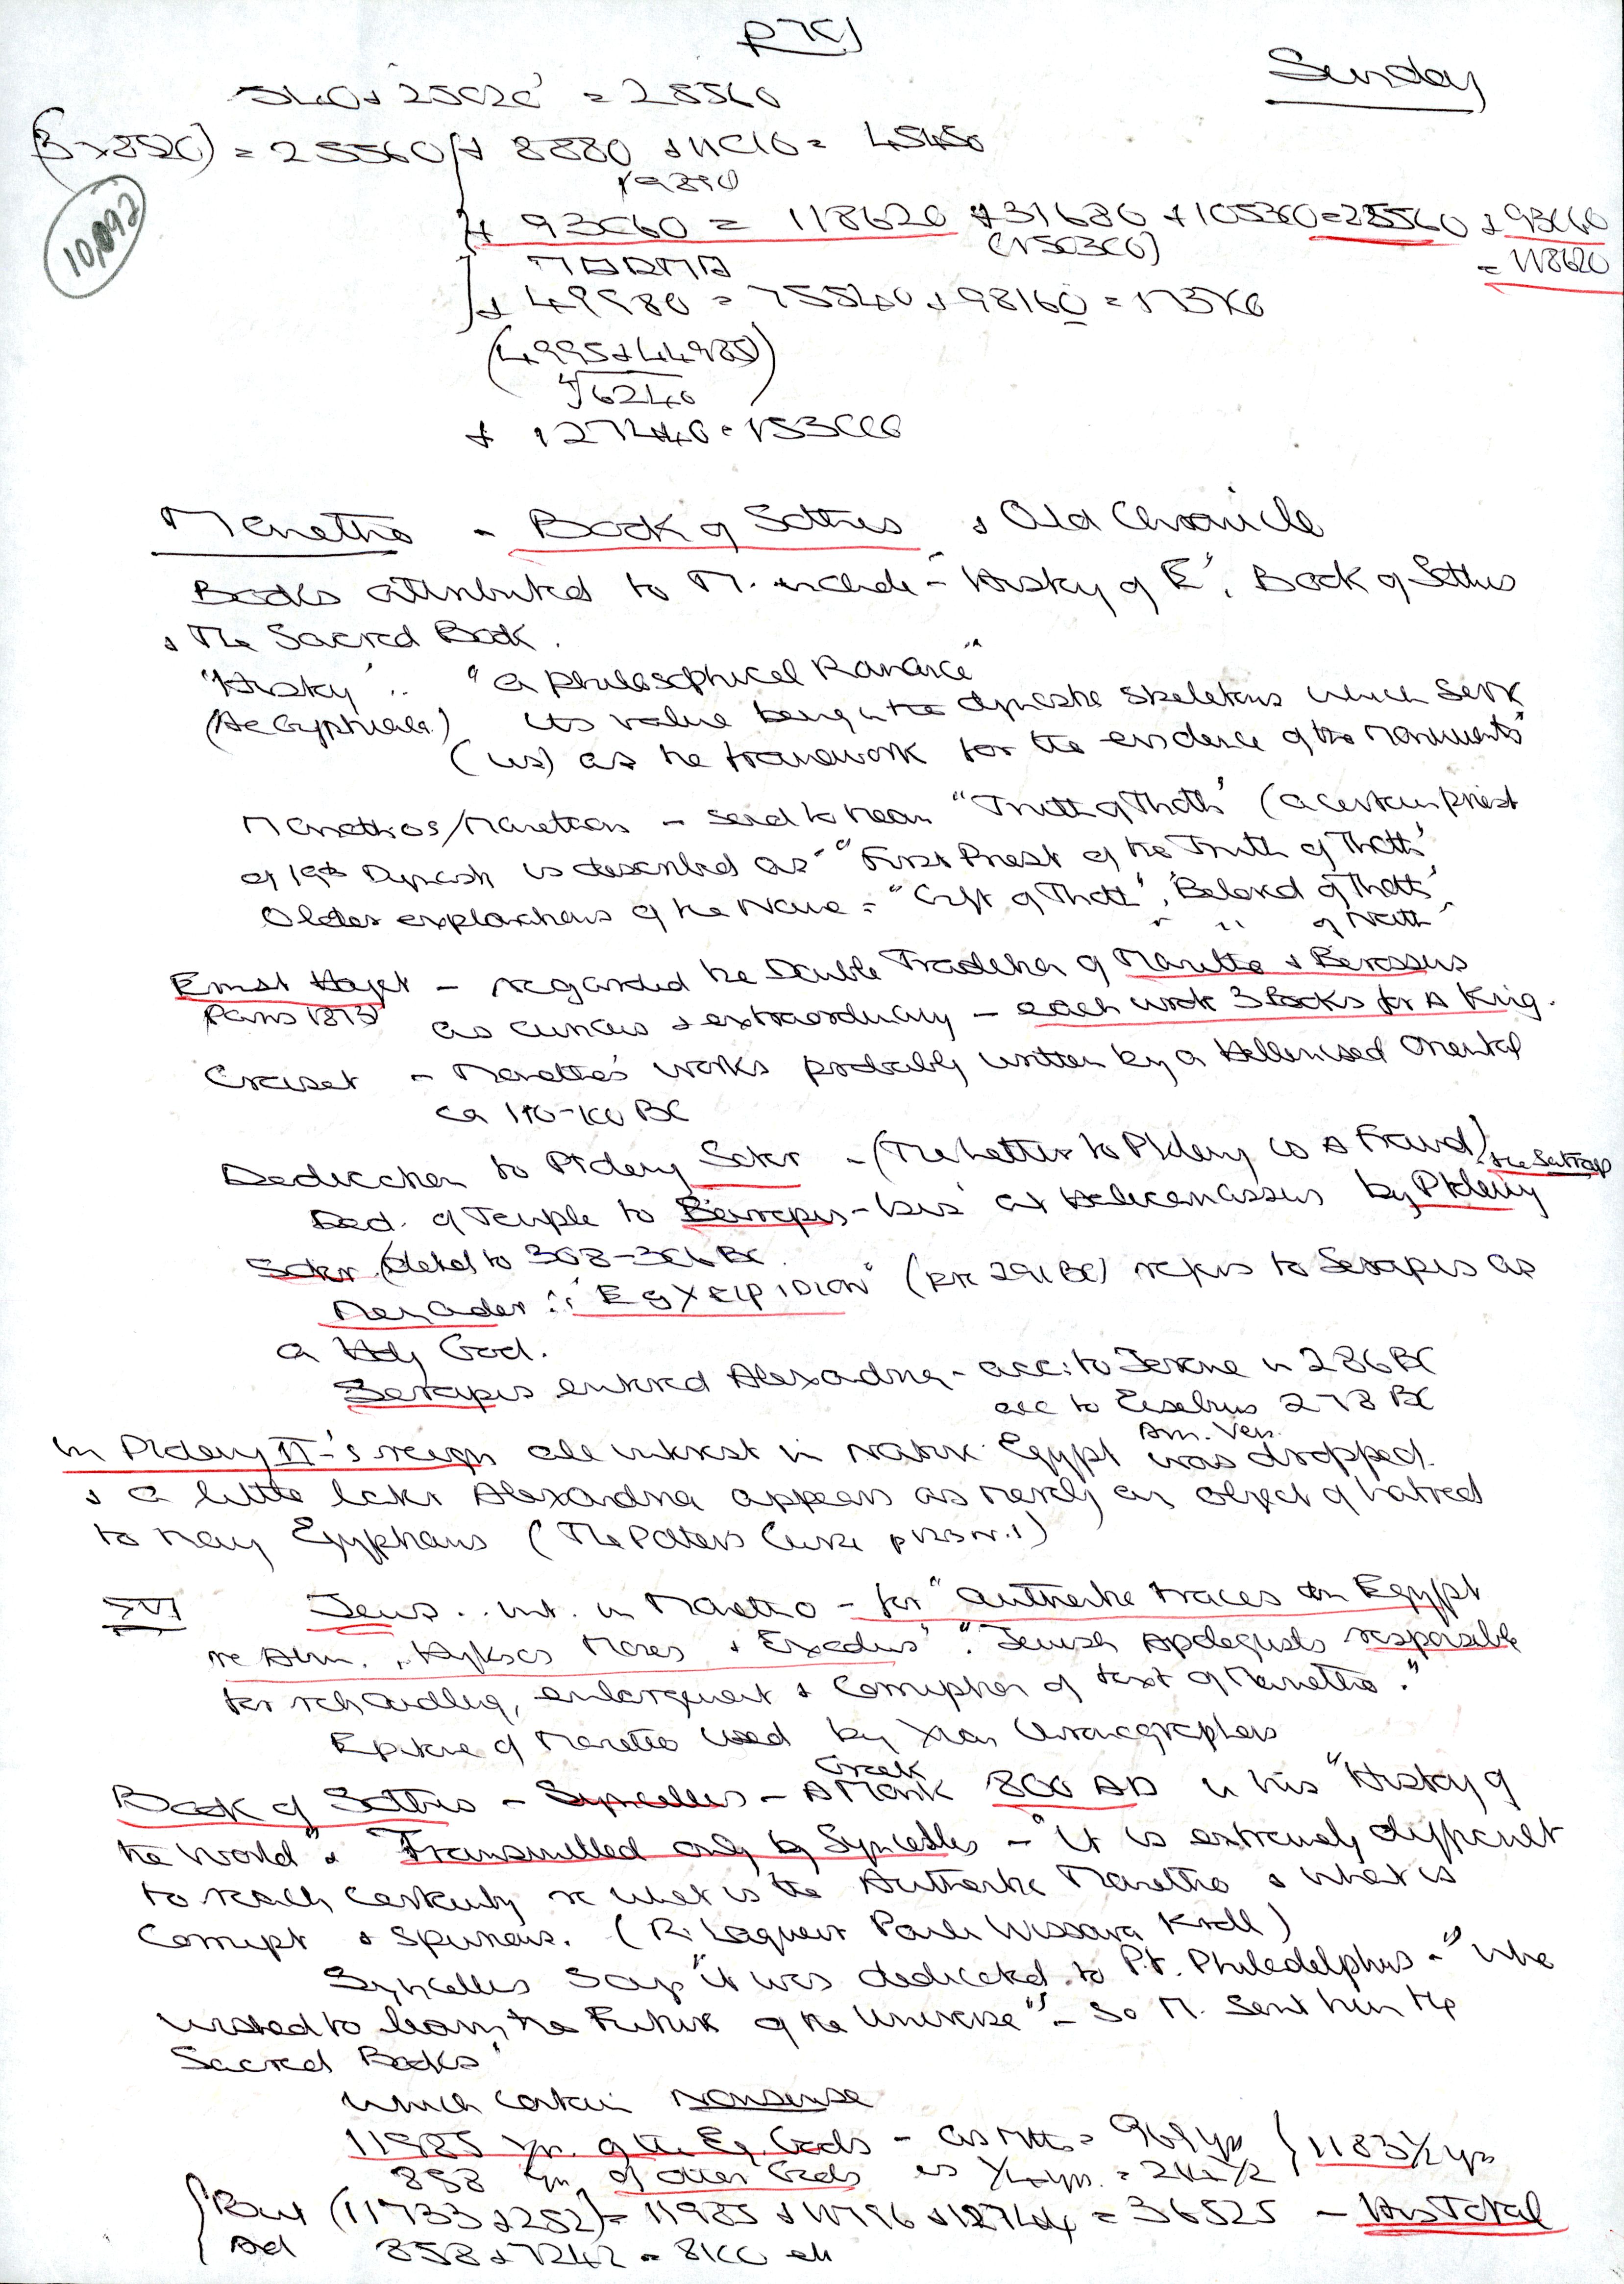 Sunday
540 + 25020 = 25560
(3 × 8520) = 25560 + 8880 + 11010 = 45450
19890
10,092
+ 93060 = 118620 + 31680 + 105360 = 25560 + 93060
(150300)
= 118620
+ 49980 = 75540 + 98160 =
(4995 + 44985)
6240
+ 127440 = 153000
Manetho - Book of Sothis & Old Chronicle
Books attributed to M. include - "History of E", Book of Sothis
& The Sacred Book.
"History" .. "a philosophical Romance"
(Aegyptiaca) its value being in the dynastic skeletons which serve
(us) as the framework for the evidence of the monuments"
Manethos/Manethon - said to mean "Truth of Thoth" (a certain priest
of 19th Dynasty is described as "First Priest of the Truth of Thoth"
Older explanations of the Name = "Gift of Thoth", "Beloved of Thoth"
" " of Neith"
Ernst Havet - regarded the Double Tradition of Manetho & Berossus
Paris 1873 as curious & extraordinary - each wrote 3 Books for A King.
Croiset - Manetho's works probably written by a Hellenised Oriental
ca 170-100 BC
Dedication to Ptolemy Soter - (The Letter to Ptolemy is a Fraud)
the Satrap
Ded. of Temple to Serapis-Isis at Halicarnassus by Ptolemy
Soter (dated to 308-306 BC
Menander: "Egxeipidion" (pre 291 BC) refers to Serapis as
a Holy God.
Serapis entered Alexandria - acc: to Jerome in 286 BC
acc to Eusebius 278 BC
Arm. Ver.
In Ptolemy II's reign all interest in native Egypt was dropped
& a little later Alexandria appears as merely an object of hatred
to many Egyptians (The Potters Curse p123 n.1)
XVI Jews .. int. in Manetho - for "authentic traces in Egypt
re Abm., Hyksos Moses & Exodus" "Jewish Apologists responsible
for rehandling, enlargement & Corruption of text of Manetho."
Epitome of Manetho used by Xian Chronographers
Book of Sothis - Syncellus - A Greek Monk 800 AD in his "History of
the World" & Transmitted only by Syncellus - "it is extremely difficult
to reach certainty re what is the Authentic Manetho & what is
Corrupt & spurious. (R. Laqueur Pauli Wissowa Kroll)
Syncellus says "it was dedicated to Pt. Philadelphus -" who
wished to learn the Future of the Universe" - so M. sent him the
Sacred Books"
which contain nonsense
11985 yrs. of the Eg. Gods - as Mths = 969 yrs } 1183½ yrs
858 yrs of other Gods as ¼ yrs. = 214½
But (11733 + 252) = 11985 + 11796 + 12744 = 36525 - His Total
Ad 858 + 7242 = 8100 etc